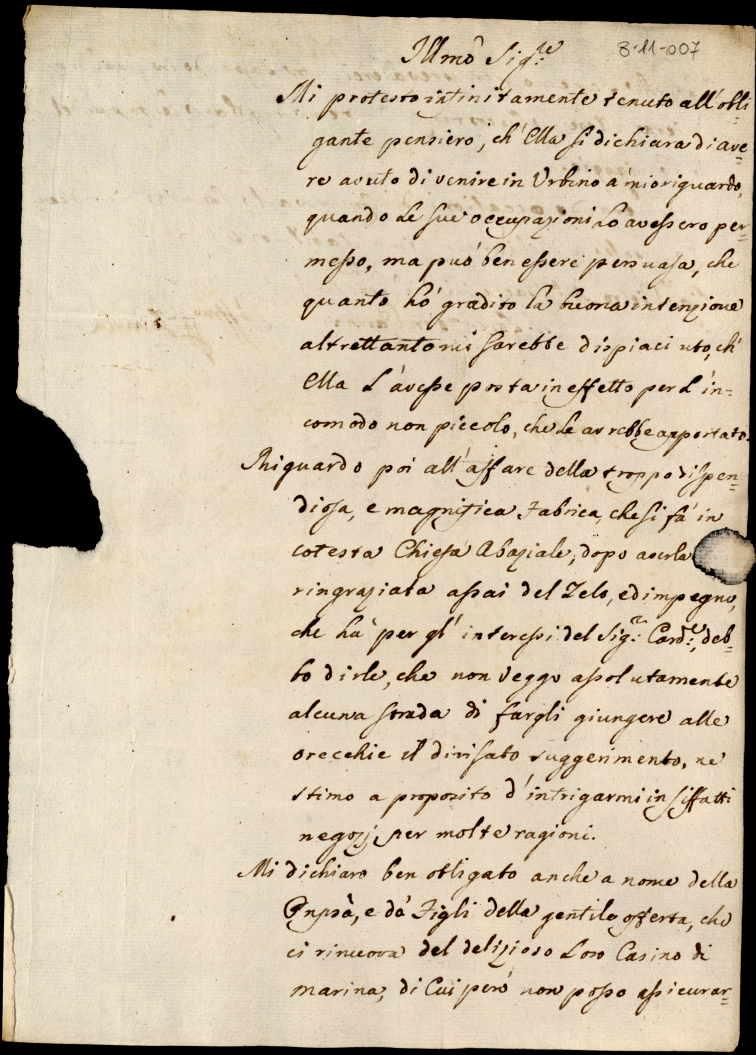 Illmo Sig.re
8-11-007
Mi protesto infinitamente tenuto all'obli-
gante pensiero, ch'Ella si dichiara di ave-
re avuto di venire in Urbino a mio riguardo,
quando le sue occupazioni Lo avessero per-
messo, ma può ben essere persuasa, che
quanto hò gradito la buona intenzione
altrettanto mi sarebbe dispiaciuto, ch'
Ella l'avesse posta in effetto per l'in-
comodo non piccolo, che Le avrebbe apportato.
Riguardo poi all'affare della troppo dispen-
diosa, e magnifica Fabrica, che si fà in
cotesta Chiesa Abaziale, dopo averla
ringraziata assai del Zelo, ed impegno,
che hà per gl'interessi del Sig.r Card.le, deb-
bo dirle, che non veggo assolutamente
alcuna strada di fargli giungere alle
orecchie il divisato suggerimento, ne
stimo a proposito d'intrigarmi in siffatti
negozj per molte ragioni.
Mi dichiaro ben obligato anche a nome della
Pnpsà, e dà Figli della gentile offerta, che
ci rinuova del delizioso Loro Casino di
marina, di Cui però non posso assicurar-